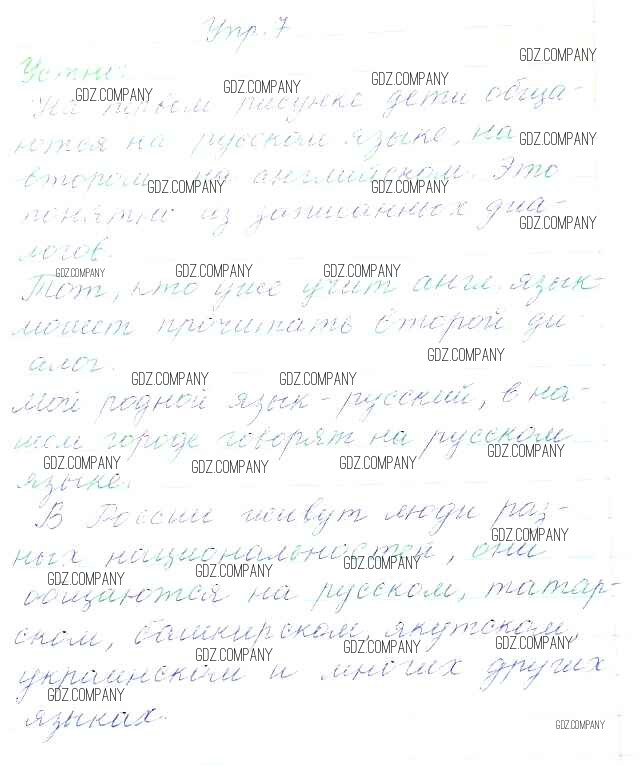 Упр. 7
GDZ.COMPANY
Устно:
GDZ.COMPANY GDZ.COMPANY GDZ.COMPANY
На первом рисунке дети обща-
ются на русском языке, на GDZ.COMPANY
втором на английском. Это
GDZ.COMPANY GDZ.COMPANY
понятно из записанных диа-
GDZ.COMPANY
логов.
GDZ.COMPANY GDZ.COMPANY GDZ.COMPANY
Тот, кто уже учит англ. язык-
может прочитать второй ди-
GDZ.COMPANY
алог.
GDZ.COMPANY GDZ.COMPANY
Мой родной язык - русский, в на-
шем городе говорят на русском
GDZ.COMPANY GDZ.COMPANY GDZ.COMPANY GDZ.COMPANY
языке.
В России живут люди раз-
GDZ.COMPANY
ных национальностей, они
GDZ.COMPANY GDZ.COMPANY GDZ.COMPANY
общаются на русском, татар-
ском, башкирском, якутском,
GDZ.COMPANY GDZ.COMPANY GDZ.COMPANY
украинском и многих других
GDZ.COMPANY
языках.
GDZ.COMPANY